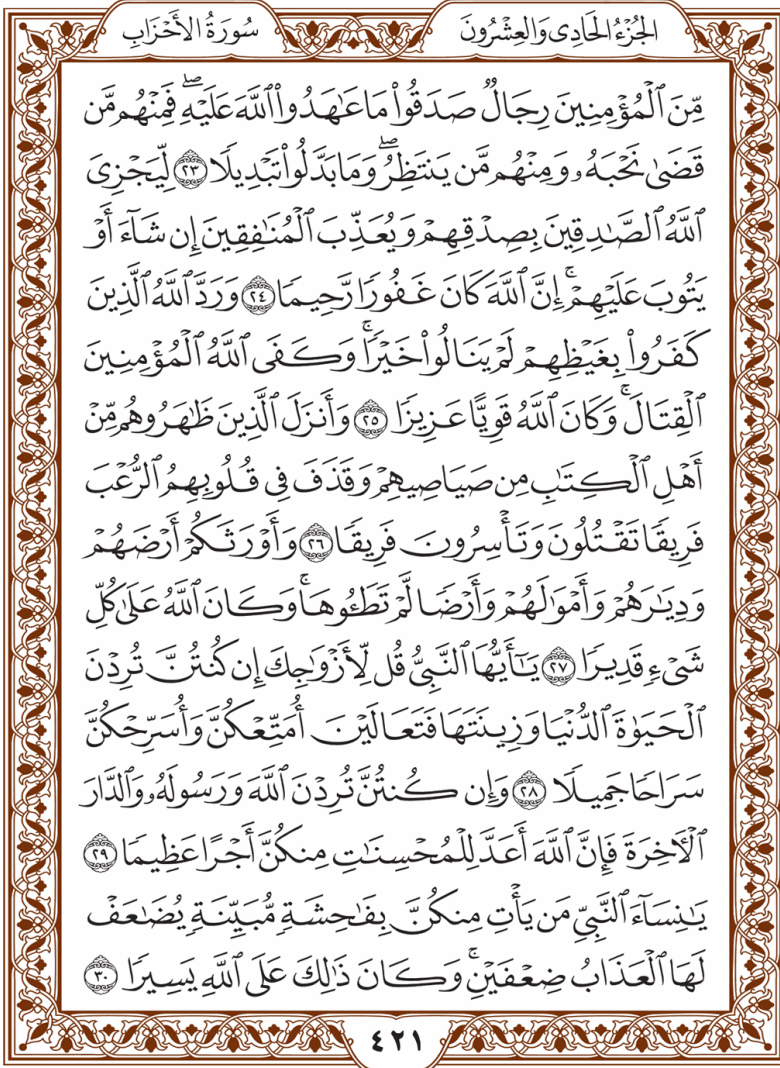 الجُزْءُ الحَادِى وَالعِشْرُونَ
سُورَةُ الأَحْزَاب
مِّنَ ٱلْمُؤْمِنِينَ رِجَالٌ صَدَقُوا۟ مَا عَـٰهَدُوا۟ ٱللَّهَ عَلَيْهِ ۖ فَمِنْهُم مَّن
قَضَىٰ نَحْبَهُۥ وَمِنْهُم مَّن يَنتَظِرُ ۖ وَمَا بَدَّلُوا۟ تَبْدِيلًا ٢٣ لِّيَجْزِىَ
ٱللَّهُ ٱلصَّـٰدِقِينَ بِصِدْقِهِمْ وَيُعَذِّبَ ٱلْمُنَـٰفِقِينَ إِن شَآءَ أَوْ
يَتُوبَ عَلَيْهِمْ ۚ إِنَّ ٱللَّهَ كَانَ غَفُورًا رَّحِيمًا ٢٤ وَرَدَّ ٱللَّهُ ٱلَّذِينَ
كَفَرُوا۟ بِغَيْظِهِمْ لَمْ يَنَالُوا۟ خَيْرًا ۚ وَكَفَى ٱللَّهُ ٱلْمُؤْمِنِينَ
ٱلْقِتَالَ ۚ وَكَانَ ٱللَّهُ قَوِيًّا عَزِيزًا ٢٥ وَأَنزَلَ ٱلَّذِينَ ظَـٰهَرُوهُم مِّنْ
أَهْلِ ٱلْكِتَـٰبِ مِن صَيَاصِيهِمْ وَقَذَفَ فِى قُلُوبِهِمُ ٱلرُّعْبَ
فَرِيقًا تَقْتُلُونَ وَتَأْسِرُونَ فَرِيقًا ٢٦ وَأَوْرَثَكُمْ أَرْضَهُمْ
وَدِيَـٰرَهُمْ وَأَمْوَٰلَهُمْ وَأَرْضًا لَّمْ تَطَـُٔوهَا ۚ وَكَانَ ٱللَّهُ عَلَىٰ كُلِّ
شَىْءٍ قَدِيرًا ٢٧ يَـٰٓأَيُّهَا ٱلنَّبِىُّ قُل لِّأَزْوَٰجِكَ إِن كُنتُنَّ تُرِدْنَ
ٱلْحَيَوٰةَ ٱلدُّنْيَا وَزِينَتَهَا فَتَعَالَيْنَ أُمَتِّعْكُنَّ وَأُسَرِّحْكُنَّ
سَرَاحًا جَمِيلًا ٢٨ وَإِن كُنتُنَّ تُرِدْنَ ٱللَّهَ وَرَسُولَهُۥ وَٱلدَّارَ
ٱلْـَٔاخِرَةَ فَإِنَّ ٱللَّهَ أَعَدَّ لِلْمُحْسِنَـٰتِ مِنكُنَّ أَجْرًا عَظِيمًا ٢٩
يَـٰنِسَآءَ ٱلنَّبِىِّ مَن يَأْتِ مِنكُنَّ بِفَـٰحِشَةٍ مُّبَيِّنَةٍ يُضَـٰعَفْ
لَهَا ٱلْعَذَابُ ضِعْفَيْنِ ۚ وَكَانَ ذَٰلِكَ عَلَى ٱللَّهِ يَسِيرًا ٣٠
٤٢١